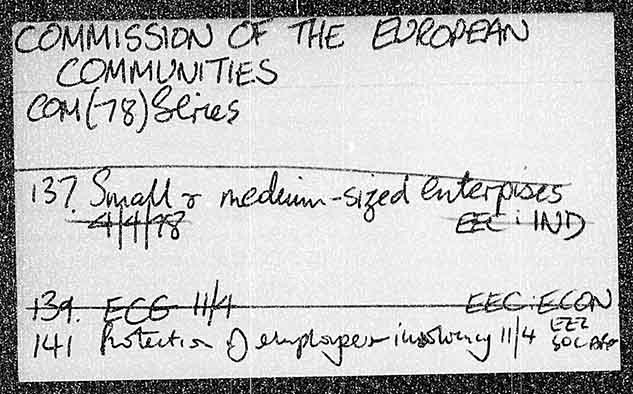 COMMISSION OF THE EUROPEAN
COMMUNITIES
COM(78) Series
137. Small & medium-sized enterpises
4/4/78 EEC: IND
139. ECG 11/4 EEC: ECON
141 Protection of employees insolvency 11/4
SOC